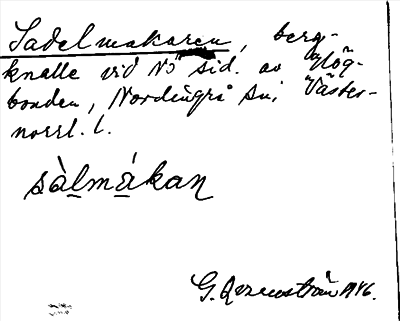 Sadelmakaren, berg-
knalle vid NÖ sid. av Hög-
bonden, Nordingrå sn, Väster-
norrl. l.
sàlmákan
G. Rosenström 1946.